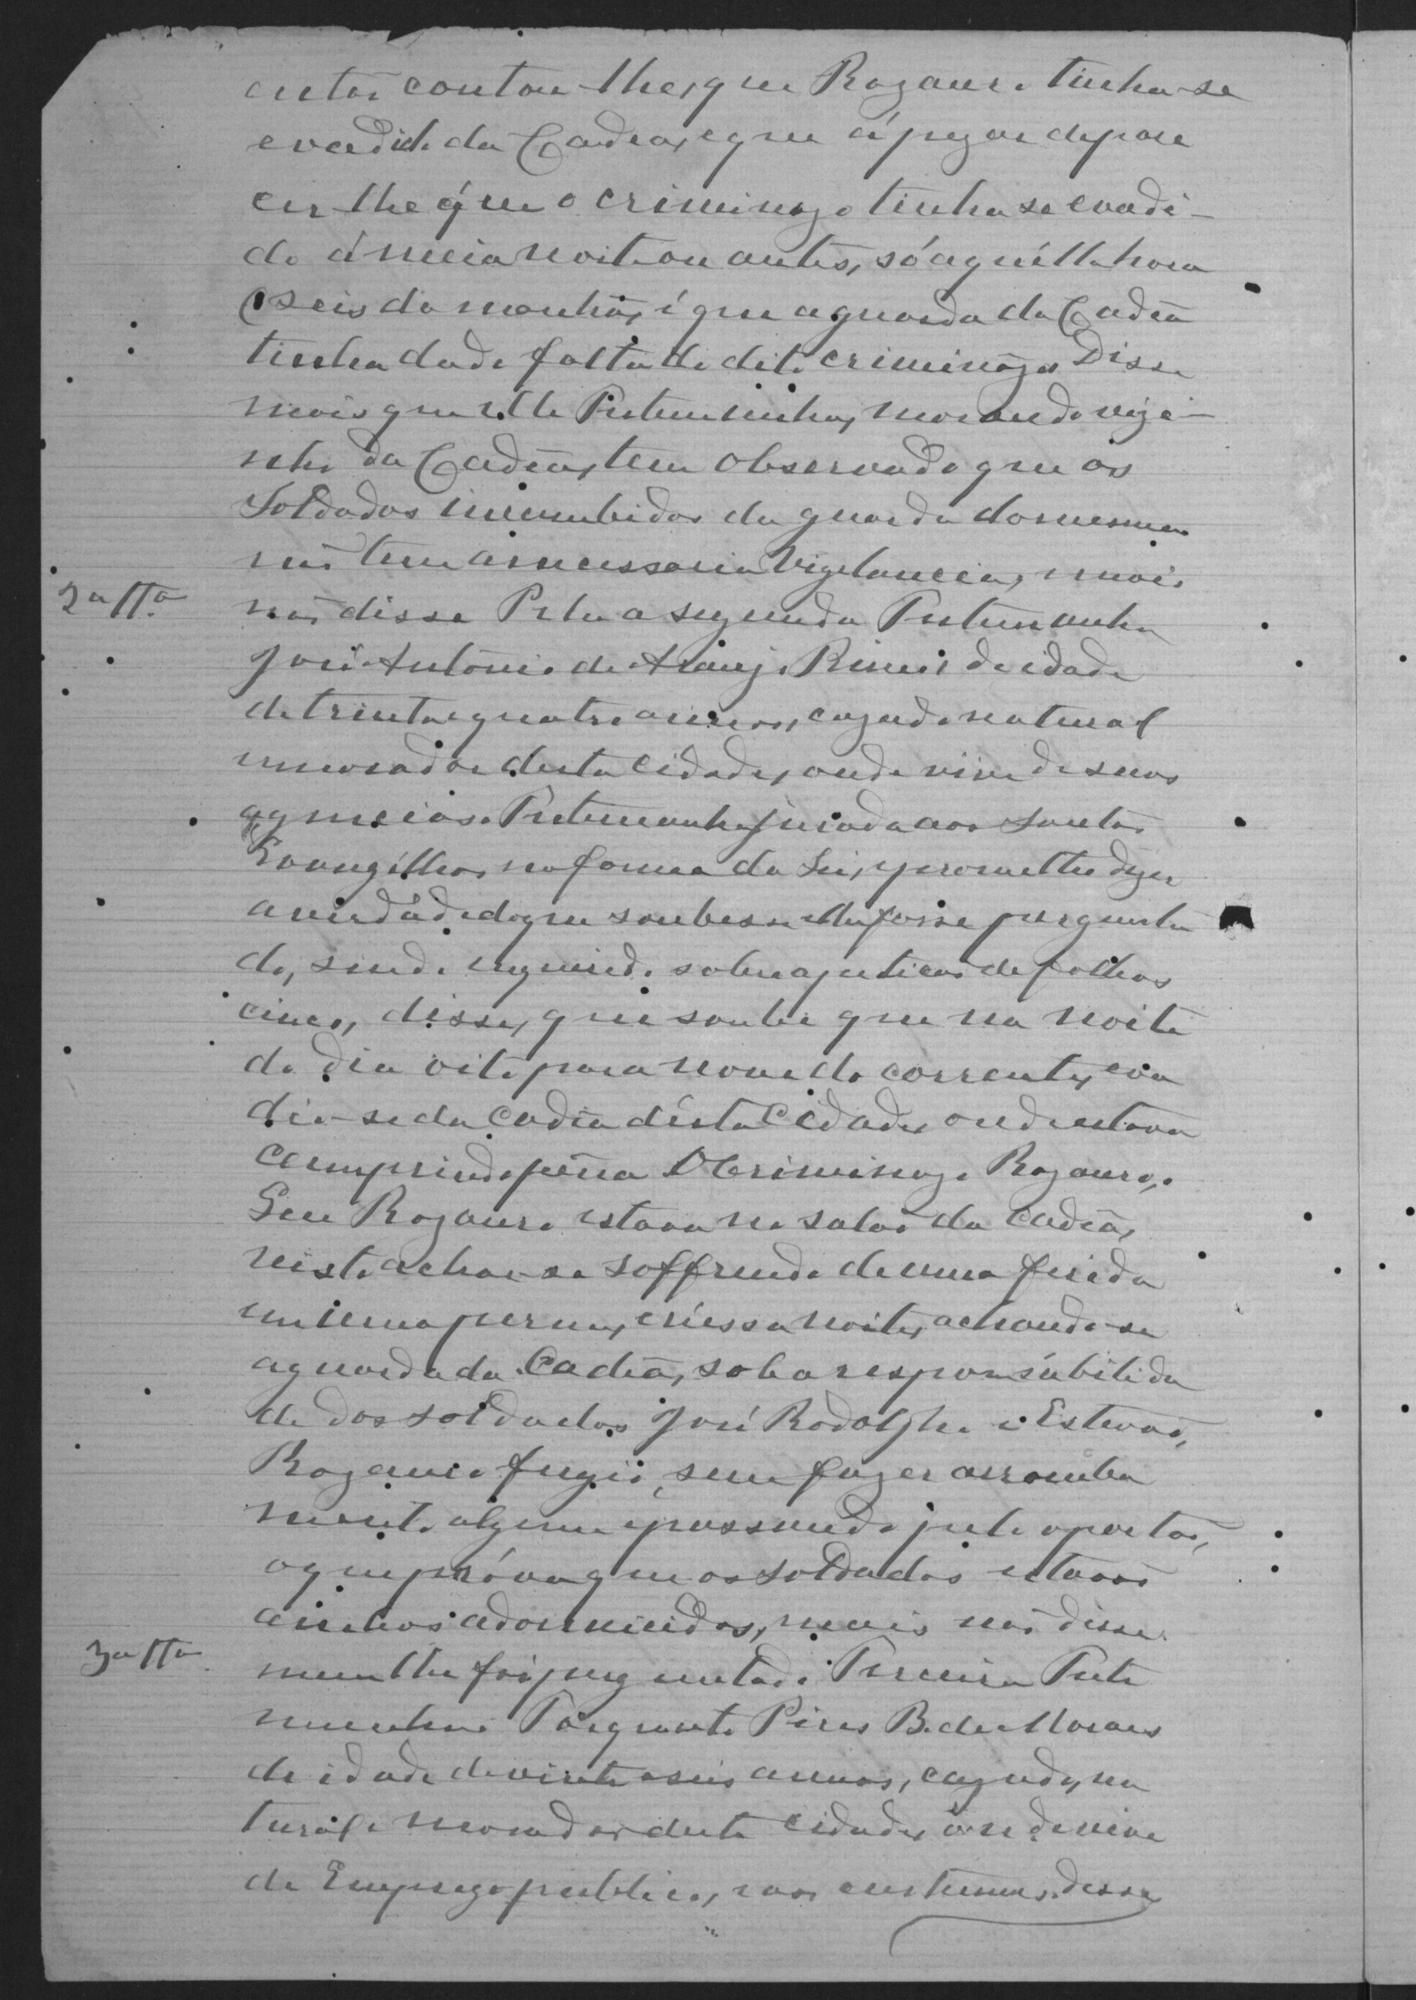 entaõ contou-lhe, que Rozauro tinha-se
evadido da Cadea, e que á pezar de pare
cer-lhe que o criminozo tinha se evadi-
do á meia noite ou antes, só áquélla hora
seis da manhã, é que a guarda da Cadeia
tinha dado falta do dito criminozo. Disse
mais que elle Testemunha, morando vizi-
nho da Cadeia, tem observado que os
Soldados incumbidos da guarda da mesma
naõ tem a necessaria Vigilancia, mais
2ª Ttª
naõ disse Pela a segunda Testemunha
José Antonio de Araujo de idade
de trinta e quatro annos, cazado natural
e morador desta Cidade, onde vive de suas
agencias. Testemunha jurada aos Santos
Evangelhos na forma da Lei, prometteu dizer
a verdade do que soubesse e lhe fosse pergunta
do, sendo inquirido sobre a peticaõ de folhas
cinco, disse, que soube que na noite
do dia oito para nove do corrente, eva
dio-se da Cadeia desta Cidade, onde estava
cumprindo pena o Criminozo Rozauro,
Seu Rozauro estava no salaõ da Cadeia,
visto achar-se soffrendo de uma ferida
em uma perna, e n'essa noite, achando-se
a guarda da Cadeia, sob a responsabilida
de dos soldados José Rodolpho e Estevaõ,
Rozauro fugio, sem fazer arromba
mento algum e passando pelo o portaõ,
o que próva que os soldados estavaõ
ambos adormecidos, mais naõ disse
3ª Ttª
nem lhe foi perguntado. Terceira Teste
munha Pires B. de Moraes
de idade de vinte e seis annos, cazado, na
tural e morador desta Cidade, onde vive
de Emprego publico, aos custumes disse